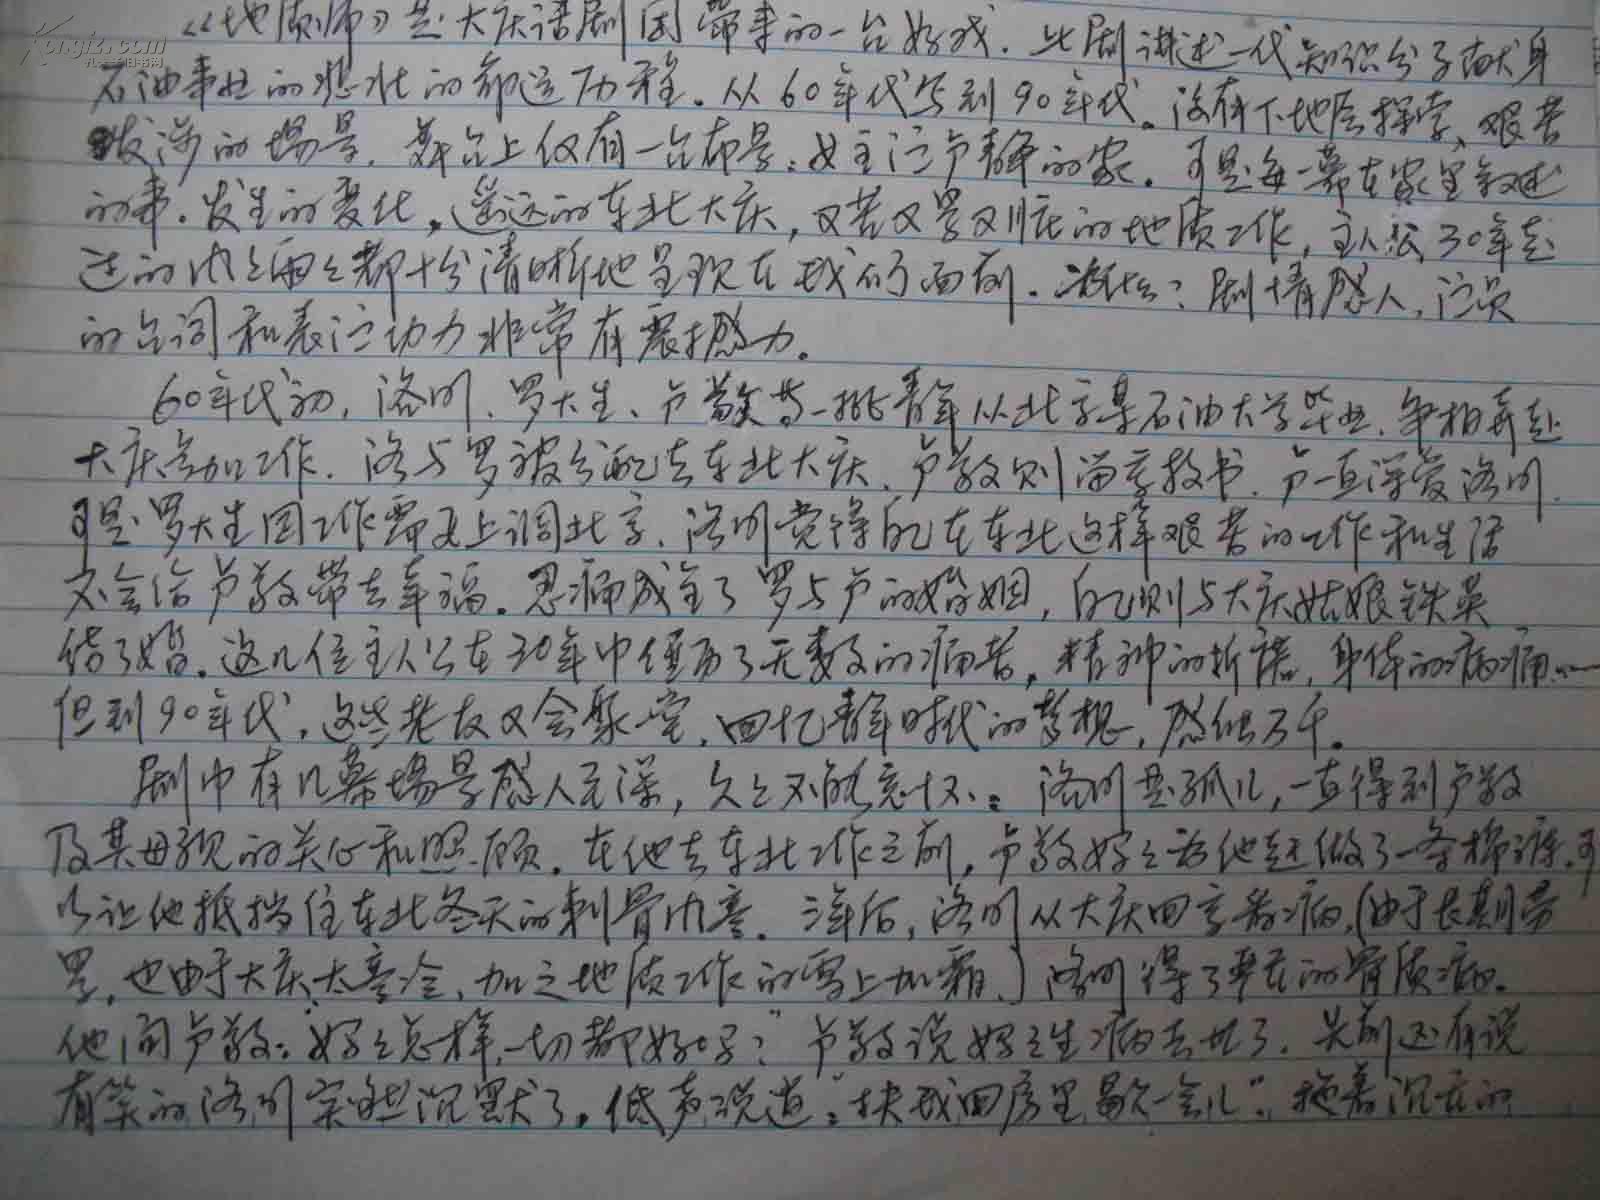 Kongfz.com
孔夫子旧书网
《地质师》是大庆话剧团带来的一台好戏．此剧讲述一代知识分子献身
石油事业的悲壮的命运历程。从60年代写到90年代。没有下地层探索、艰苦
跋涉的场景．舞台上仅有一台布景：女主演卢静的家．可是每一幕在家里叙述
的事．发生的变化，遥远的东北大庆，又苦又累又刺激的地质工作，主人公30年走
过的风风雨雨都十分清晰地呈现在我们面前．剧情感人，演员
的台词和表演功力非常有震撼力。
60年代初，洛明、罗大生、卢敬等一批青年从北京某石油大学毕业．争相奔赴
大庆参加工作．洛与罗被分配去东北大庆、卢敬则留京教书．卢一直深爱洛明．
可是罗大生因工作需要上调北京．洛明觉得自己在东北这样艰苦的工作和生活
不会给卢敬带去幸福。忍痛成全了罗与卢的婚姻，自己则与大庆姑娘铁英
结了婚．这几位主人公在30年中经历了无数的痛苦，精神的折磨，身体的病痛……
但到90年代，这些老友又会聚一堂，回忆青年时代的梦想，感慨万千。
剧中有几幕场景感人至深，久久不能忘怀：洛明是孤儿，一直得到卢敬
及其母亲的关心和照顾．在他去东北工作之前，卢敬妈妈为他赶做了一条棉裤．可
以让他抵挡住东北冬天的刺骨风寒．三年后，洛明从大庆回京看病，（由于长期劳
累，也由于大庆太寒冷、加之地质工作的雪上加霜．）洛明得了严重的骨质病．
他问卢敬：“妈妈怎样，一切都好吗？”卢敬说妈妈生病去世了．先前还有说
有笑的洛明突然沉默了。低声说道：“扶我回房里歇一会儿”．拖着沉重的